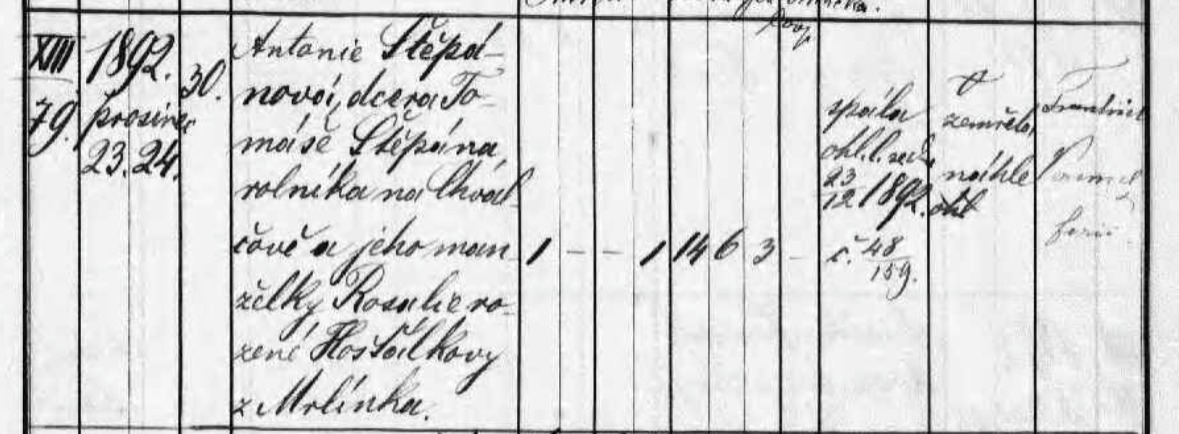 XIII
79.
1892.
prosinec
23. 24.
30.
Antonie Štěpá-
nová, dcera To-
máše Štěpána,
rolníka na Chval-
čově a jeho man
želky Rosalie ro-
zené Hošťálkovy
z Mrlínka.
1 - - 1 14 6 3 -
spála
ohl. l.
23/12 1892.
č. 48/159.
zemřela
náhle